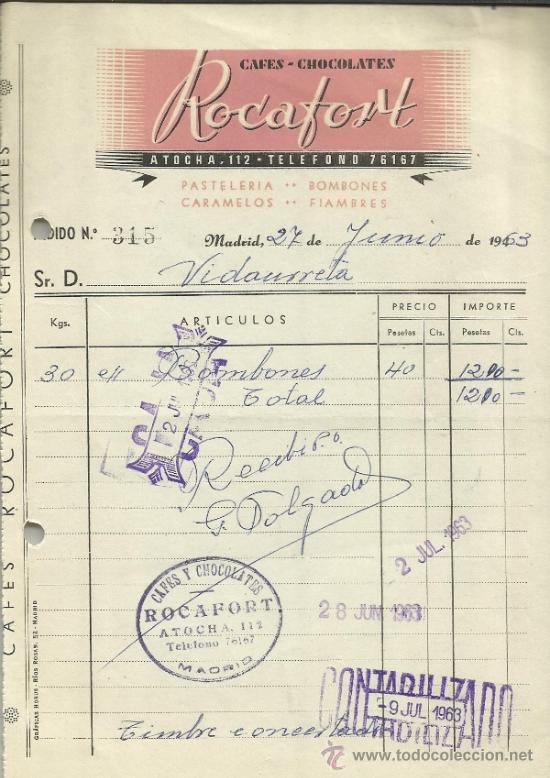 CAFES - CHOCOLATES
Rocafort
ATOCHA, 112 - TELEFONO 76167
PASTELERIA ·· BOMBONES
CARAMELOS ·· FIAMBRES
DIDO N.º 315
Madrid, 27 de Junio de 1963
Sr. D. Vidaurreta
Kgs. ARTICULOS PRECIO IMPORTE
Pesetas Cts. Pesetas Cts.
30 Bombones 40 1200 -
Total 1200 -
CAJA
2 JU
Recibi P.O.
G. Folgado
2 JUL. 1963
28 JUN. 1963
CAFES Y CHOCOLATES
ROCAFORT
ATOCHA, 112
Telefono 76167
MADRID
CONTABILIZADO
-9 JUL 1963
Timbre concertado
CAFES ROCAFORT CHOCOLATES
GRÁFICAS HORUS - RÍOS ROSAS, 52 - MADRID
www.todocoleccion.net